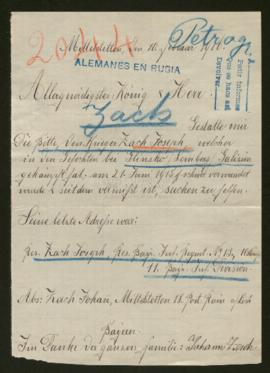 20414
Petrogr.
Mittelstetten, am 16. Februar 1916.
ALEMANES EN RUSIA
Pedir informe
que se hace así
Devolver
Allergnädigster König & Herr!
Zach
Gestatte mir
die Bitte, den Krieger Zach Joseph, welcher
in den Gefechten bei Stinsko, Lemberg Galizien
gekämpft hat, am 21. Juni 1915 schwer verwundet
wurde & seitdem vermißt ist, suchen zu helfen.
Seine letzte Adresse war:
Res. Zach Joseph, Res. Bayr. Inf. Regmt. No 13, 11 Komp
11. Bayr. Inf. Division.
Abs: Zach Johan, Mittelstetten 18. Post Rain a/Lech
Bayern.
Im Danke die ganzen Familie: Johann Zach